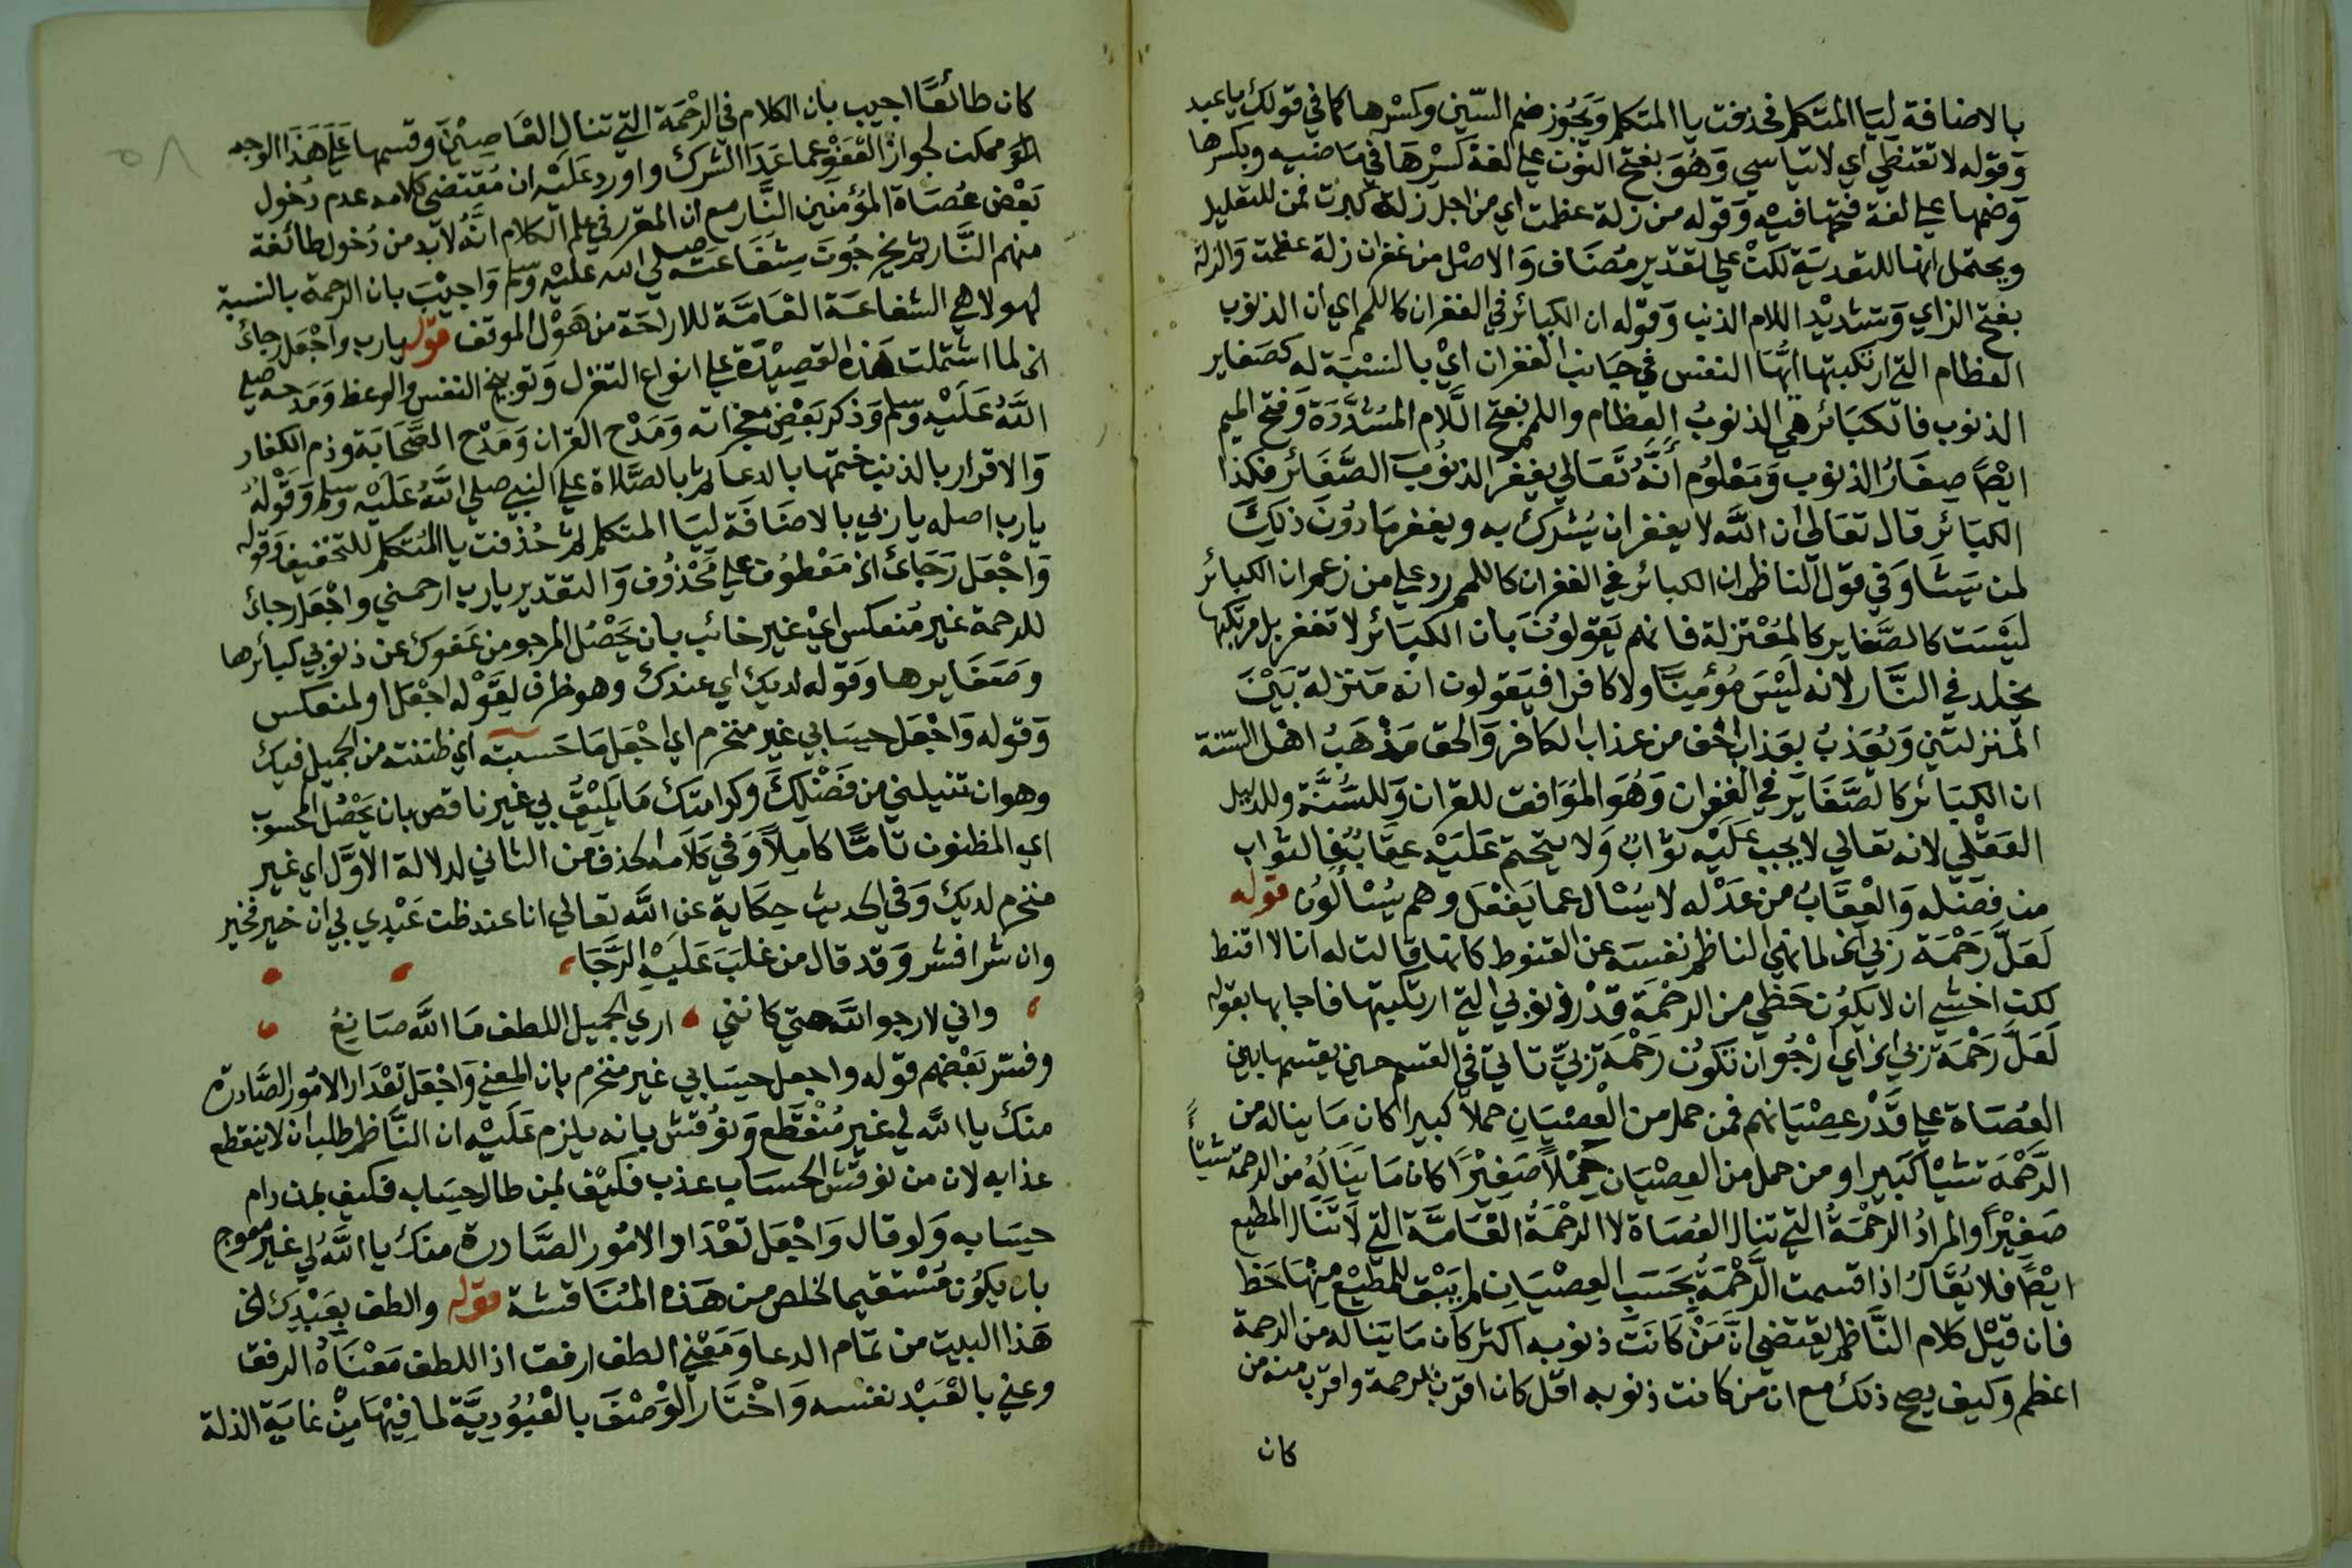 بالاضافة ليا المتكلم فحذفت يا المتكلم ويجوز ضم السين وكسرها كما في قولك يا عبد
وقوله لا تقنطي اي لا تياسي وهو بفتح النون علي لغة كسرها في ماضيه وبكسرها
وضمها علي لغة فتحها فيه وقوله من زلة عظمت اي من اجل زلة كبرت فمن للتعليل
ويحتمل انها للتعدية لكن علي تقدير مضاف والاصل من غفران زلة عظمت والزلة
بفتح الزاي وتشديد اللام الذنب وقوله ان الكبائر في الغفران كاللمم اي ان الذنوب
العظام التي ارتكبتها ايها النفس في جانب الغفران اي بالنسبة له كصغاير
الذنوب فالكبائر هي الذنوب العظام واللمم بفتح اللام المشددة وفتح الميم
ايضا صغار الذنوب ومعلوم انه تعالي يغفر الذنوب الصغائر فكذا
الكبائر قال تعالي ان الله لا يغفر ان يشرك به ويغفر ما دون ذلك
لمن يشا وفي قول الناظم ان الكبائر في الغفران كاللمم رد علي من زعم ان الكبائر
ليست كالصغاير كالمعتزلة فانهم يقولون بان الكبائر لا تغفر بل مرتكبها
يخلد في النار لانه ليس مؤمنا ولا كافرا فيقولون انه منزلة بين
المنزلتين ويعذب بعذاب اخف من عذاب الكافر والحق مذهب اهل السنة
ان الكبائر كالصغاير في الغفران وهو الموافق للقران وللسنة وللدليل
العقلي لانه تعالي لا يجب عليه ثواب ولا يتحتم عليه عقاب فالثواب
من فضله والعقاب من عدله لا يسال عما يفعل وهم يسألون قوله
لعل رحمة ربي الخ لما نهي الناظم نفسه عن القنوط كانها قالت له انا لا اقنط
لكن اخشي ان لا يكون حظي من الرحمة قدر ذنوبي التي ارتكبتها فاجابها بقوله
لعل رحمة ربي الخ اي ارجو ان تكون رحمة ربي تاتي في القسم حين يقسمها بين
العصاة علي قدر عصيانهم فمن حمل من العصيان حملا كبيرا كان ما يناله من
الرحمة شيا كبيرا ومن حمل من العصيان حملا صغيرا كان ما يناله من الرحمة شيئا
صغيرا والمراد الرحمة التي تنال العصاة لا الرحمة العامة التي لا تنال المطيع
ايضا فلا يقال اذا قسمت الرحمة بحسب العصيان لم يبق للمطيع منها حظ
فان قيل كلام الناظم يقتضي ان من كانت ذنوبه اكثر كان ما يناله من الرحمة
اعظم وكيف يصح ذلك مع ان من كانت ذنوبه اقل كان اقرب للرحمة واقرب منه من
كان
كان طائعا اجيب بان الكلام في الرحمة التي تنال العاصين وقسمها علي هذا الوجه
ممكن لجواز العفو عما عدا الشرك واورد عليه ان مقتضي كلامه عدم دخول
بعض عصاة المؤمنين النار مع ان المقرر في علم الكلام انه لا بد من دخول طائفة
منهم النار ثم يخرجون بشفاعته صلي الله عليه وسلم واجيب بان الرحمة بالنسبة
لهولا هي الشفاعة العامة للاراحة من هول الموقف قوله يا رب واجعل رجائ
الخ لما اشتملت هذه القصيدة علي انواع التغزل وتوبيخ النفس والوعظ ومدحه صلي
الله عليه وسلم وذكر بعض معجزاته ومدح القران ومدح الصحابة وذم الكفار
والاقرار بالذنب ختمها بالدعا ثم بالصلاة علي النبي صلي الله عليه وسلم وقوله
يا رب اصله يا ربي بالاضافة ليا المتكلم ثم حذفت يا المتكلم للتخفيف وقوله
واجعل رجائ الخ معطوف علي محذوف والتقدير يا رب ارحمني واجعل رجائ
للرحمة غير منعكس اي غير خائب بان يحصل المرجو من عفوك عن ذنوبي كبائرها
وصغايرها وقوله لديك اي عندك وهو ظرف لقوله اجعل او لمنعكس
وقوله واجعل حسابي غير منخرم اي اجعل ما حسبته اي ظننته من الجميل فيك
وهو ان تنيلني من فضلك وكرامتك ما يليق بي غير ناقص بان يحصل المحسوب
اي المظنون تاما كاملا وفي كلامه الحذف من الثاني لدلالة الاول اي غير
منخرم لديك وفي الحديث حكاية عن الله تعالي انا عند ظن عبدي بي ان خير فخير
وان شرا فشر وقد قال من غلب عليه الرجا
واني لارجو الله حتي كانني اري الجميل اللطف ما الله صانع
وفسر بعضهم قوله واجعل حسابي غير منخرم بان المعني واجعل تعداد الامور الصادرة
منك يا الله لي غير منقطع ونوقش بانه يلزم عليه ان الناظم طلب ان لا ينقطع
عذابه لان من نوقش الحساب عذب فكيف لمن طال حسابه فكيف لمن دام
حسابه ولو قال واجعل تعداد الامور الصادرة منك يا الله لي غير معوج
بان يكون مستقيما لخلص من هذه المناقشة قوله والطف بعبدك الخ
هذا البيت من تمام الدعا ومعني الطف ارفق اذ اللطف معناه الرفق
وعني بالعبد نفسه واختار الوصف بالعبودية لما فيها من غاية الذلة